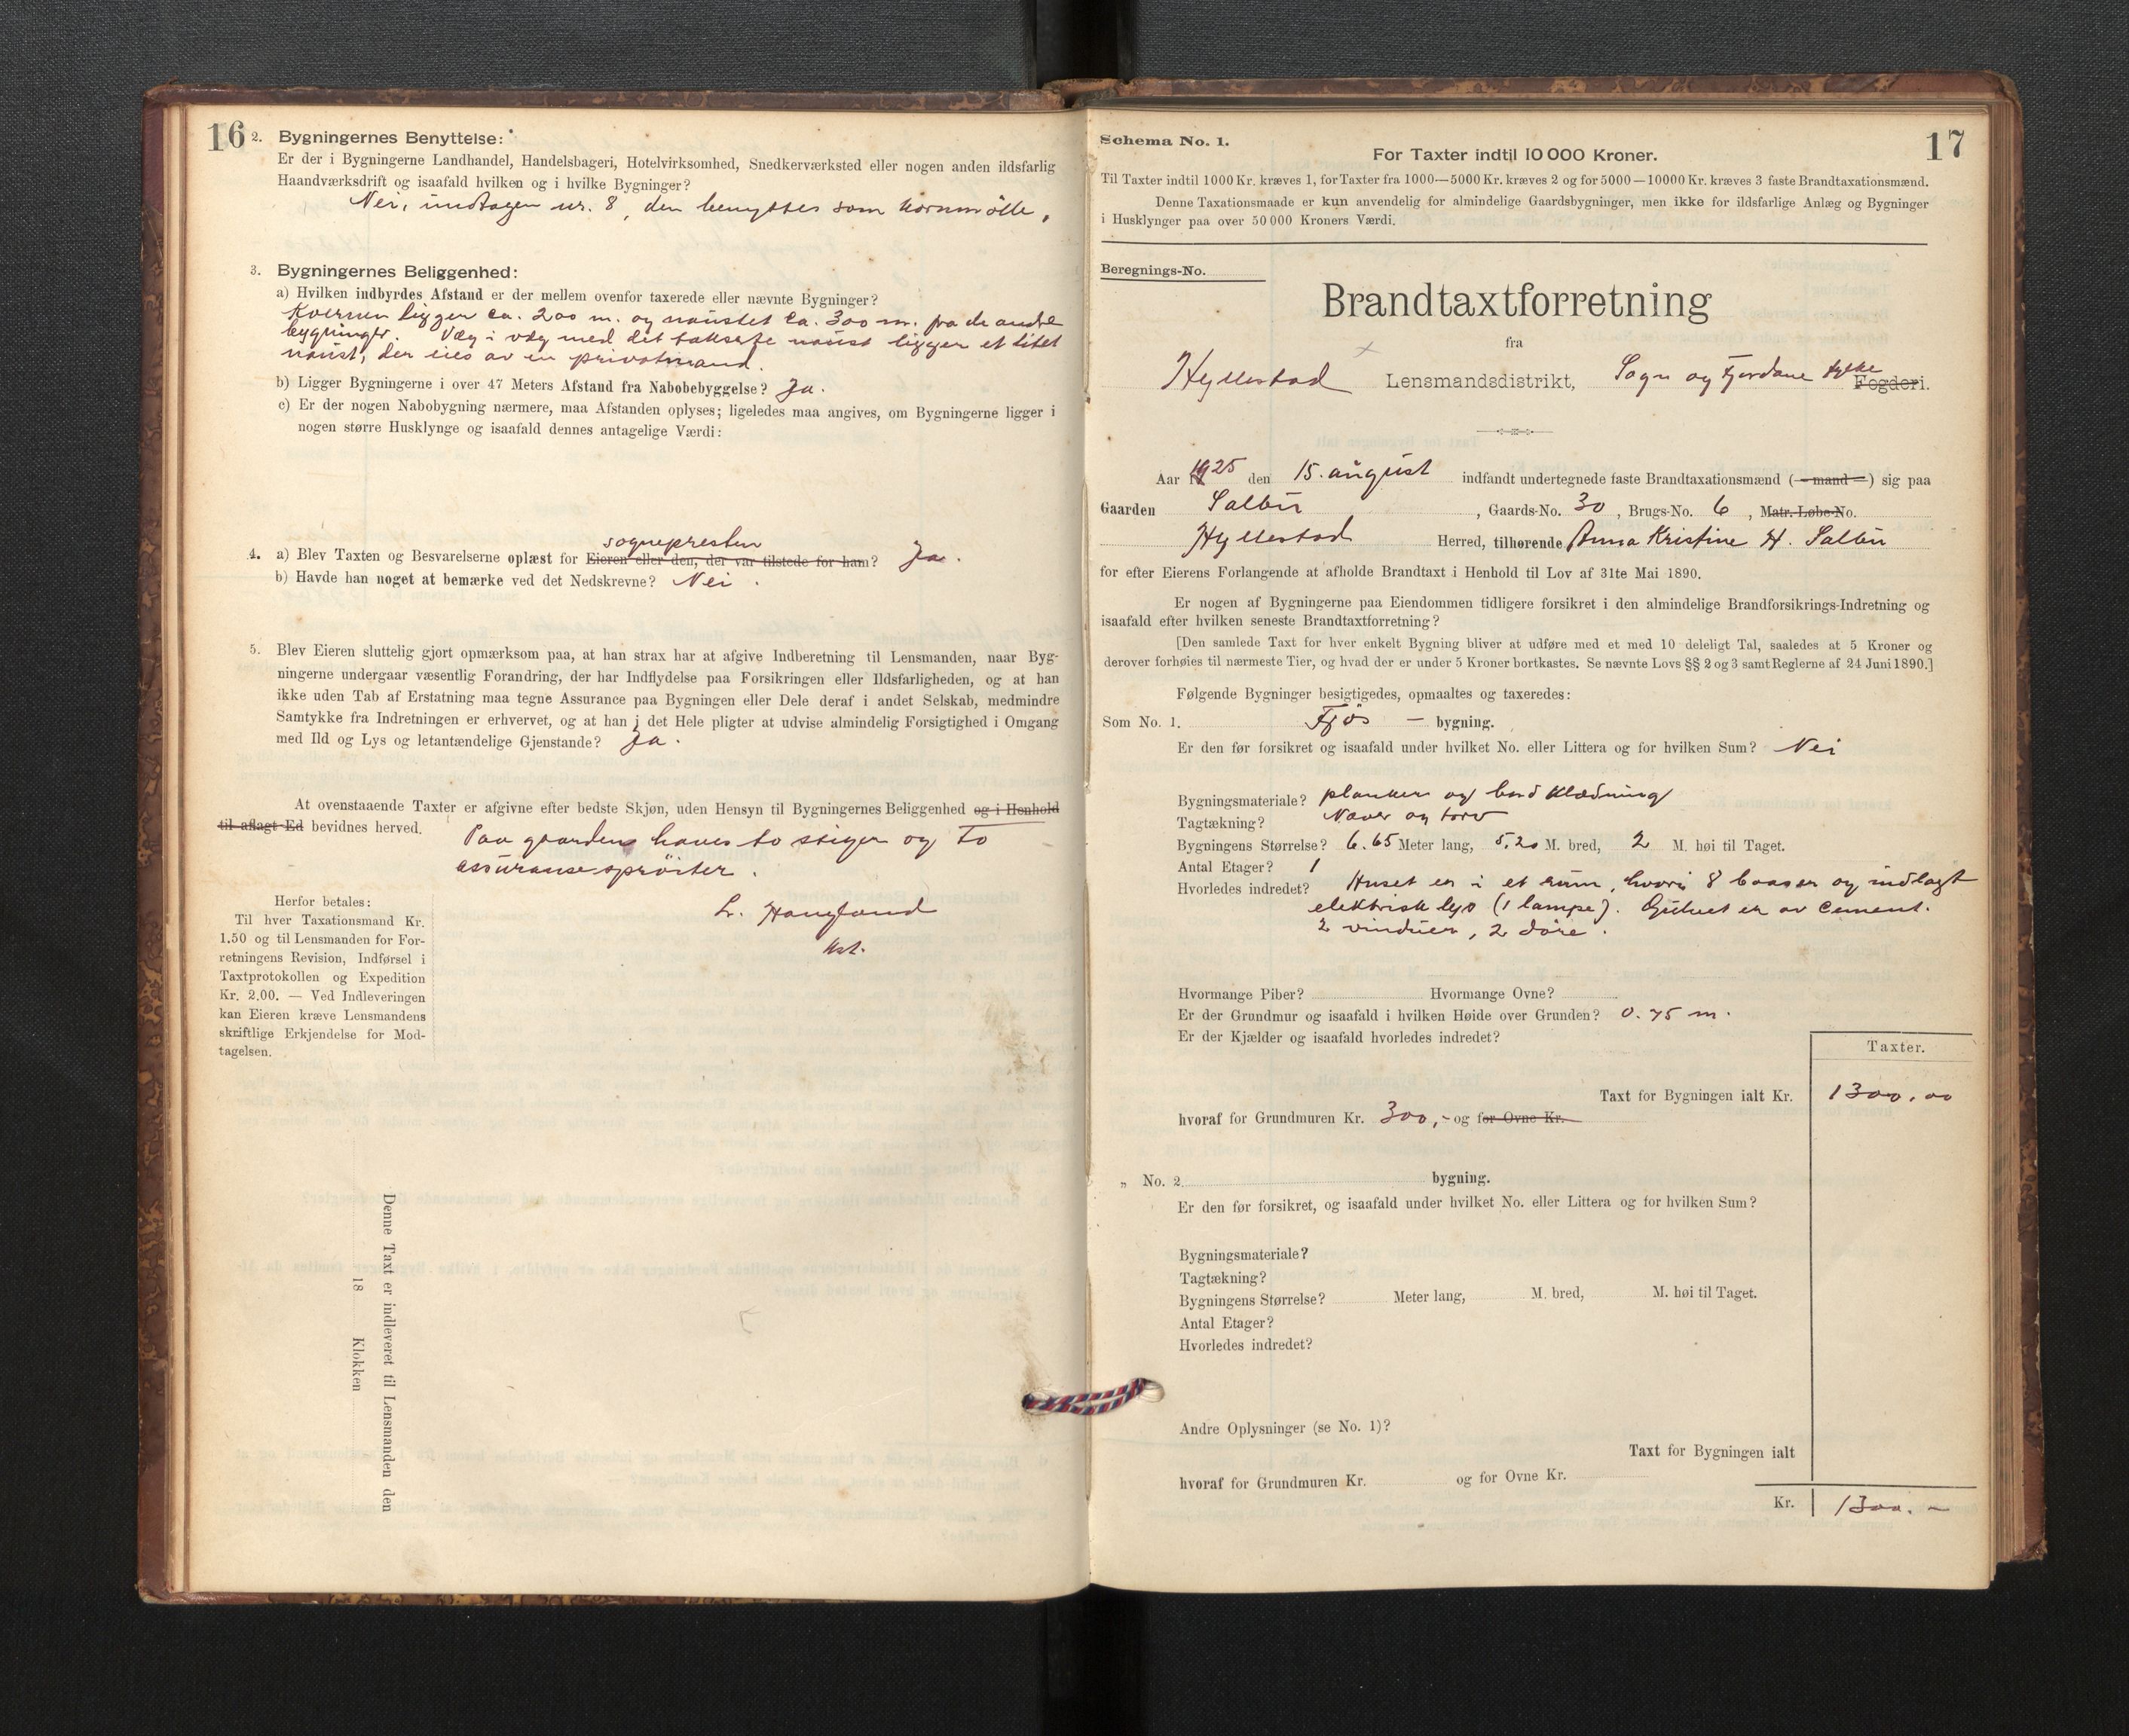 16
2. Bygningernes Benyttelse:
Er der i Bygningerne Landhandel, Handelsbageri, Hotelvirksomhed, Snedkerværksted eller nogen anden ildsfarlig
Haandværksdrift og isaafald hvilken og i hvilke Bygninger?
Nei, undtagen nr. 8, den benyttes som kornmölle.
3. Bygningernes Beliggenhed:
a) Hvilken indbyrdes Afstand er der mellem ovenfor taxerede eller nævnte Bygninger?
Kvernen ligger ca. 200 m. og naustet ca. 300 m. fra de andre
bygninger. Væg i væg med det takserte naust ligger et litet
naust, der eies av en privatmand.
b) Ligger Bygningerne i over 47 Meters Afstand fra Nabobebyggelse? Ja.
c) Er der nogen Nabobygning nærmere, maa Afstanden oplyses; ligeledes maa angives, om Bygningerne ligger i
nogen større Husklynge og isaafald dennes antagelige Værdi:
sognepresten
4. a) Blev Taxten og Besvarelserne oplæst for Eieren eller den, der var tilstede for ham? Ja.
b) Havde han noget at bemærke ved det Nedskrevne? Nei.
5. Blev Eieren sluttelig gjort opmærksom paa, at han strax har at afgive Indberetning til Lensmanden, naar Byg-
ningerne undergaar væsentlig Forandring, der har Indflydelse paa Forsikringen eller Ildsfarligheden, og at han
ikke uden Tab af Erstatning maa tegne Assurance paa Bygningen eller Dele deraf i andet Selskab, medmindre
Samtykke fra Indretningen er erhvervet, og at han i det Hele pligter at udvise almindelig Forsigtighed i Omgang
med Ild og Lys og letantændelige Gjenstande? Ja.
At ovenstaaende Taxter er afgivne efter bedste Skjøn, uden Hensyn til Bygningernes Beliggenhed og i Henhold
til aflagt Ed bevidnes herved.
Paa gaarden haves to stiger og to
assuransespröiter.
L. Haugland
kst.
Herfor betales:
Til hver Taxationsmand Kr.
1.50 og til Lensmanden for For-
retningens Revision, Indførsel i
Taxtprotokollen og Expedition
Kr. 2.00. — Ved Indleveringen
kan Eieren kræve Lensmandens
skriftlige Erkjendelse for Mod-
tagelsen.
Denne Taxt er indleveret til Lensmanden den
18 Klokken
17
Schema No. 1.
For Taxter indtil 10 000 Kroner.
Til Taxter indtil 1000 Kr. kræves 1, for Taxter fra 1000—5000 Kr. kræves 2 og for 5000—10000 Kr. kræves 3 faste Brandtaxationsmænd.
Denne Taxationsmaade er kun anvendelig for almindelige Gaardsbygninger, men ikke for ildsfarlige Anlæg og Bygninger
i Husklynger paa over 50 000 Kroners Værdi.
Beregnings-No.
Brandtaxtforretning
fra
Hyllestad Lensmandsdistrikt, Sogn og Fjordane fylke Fogderi.
Aar 1925 den 15. august indfandt undertegnede faste Brandtaxationsmænd (—mand—) sig paa
Gaarden Salbu, Gaards-No. 30, Brugs-No. 6, Matr.-Løbe-No.
Hyllestad Herred, tilhørende Anna Kristine H. Salbu
for efter Eierens Forlangende at afholde Brandtaxt i Henhold til Lov af 31te Mai 1890.
Er nogen af Bygningerne paa Eiendommen tidligere forsikret i den almindelige Brandforsikrings-Indretning og
isaafald efter hvilken seneste Brandtaxtforretning?
[Den samlede Taxt for hver enkelt Bygning bliver at udføre med et med 10 deleligt Tal, saaledes at 5 Kroner og
derover forhøies til nærmeste Tier, og hvad der er under 5 Kroner bortkastes. Se nævnte Lovs §§ 2 og 3 samt Reglerne af 24 Juni 1890.]
Følgende Bygninger besigtigedes, opmaaltes og taxeredes:
Som No. 1. Fjös — bygning.
Er den før forsikret og isaafald under hvilket No. eller Littera og for hvilken Sum? Nei
Bygningsmateriale? planker og bordklædning
Tagtækning? Never og torv
Bygningens Størrelse? 6.65 Meter lang, 5.20 M. bred, 2 M. høi til Taget.
Antal Etager? 1
Hvorledes indredet? Huset er i et rum, hvori 8 baaser og indlagt
elektrisk lys (1 lampe). Gulvet er av cement.
2 vinduer, 2 döre.
Hvormange Piber? Hvormange Ovne?
Er der Grundmur og isaafald i hvilken Høide over Grunden? 0.75 m.
Er der Kjælder og isaafald hvorledes indredet?
Taxter.
Taxt for Bygningen ialt Kr. 1300,00
hvoraf for Grundmuren Kr. 300,- og for Ovne Kr.
„ No. 2 bygning.
Er den før forsikret, og isaafald under hvilket No. eller Littera og for hvilken Sum?
Bygningsmateriale?
Tagtækning?
Bygningens Størrelse? Meter lang, M. bred, M. høi til Taget.
Antal Etager?
Hvorledes indredet?
Andre Oplysninger (se No. 1)?
Taxt for Bygningen ialt
hvoraf for Grundmuren Kr. og for Ovne Kr.
Kr. 1300.-